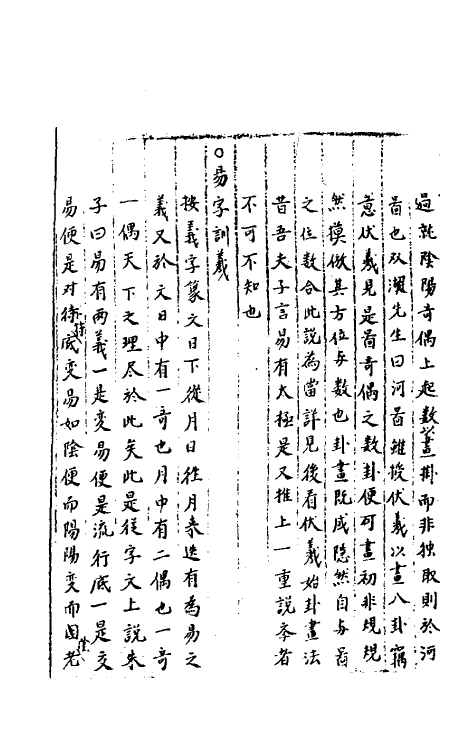 過就陰陽奇偶上起數以畫掛而非独取則於河
啚也双湖先生曰河啚雖授伏羲以畫八卦竊
意伏羲見是啚奇偶之数卦便可畫初非規規
然摸倣其方位与數也卦畫既成隐然自与啚
之位数合此說為當詳見後看伏羲始卦畫法
昔吾夫子言易有太極是又推上一重說斈者
不可不知也
○易字訓義
按義字篆文日下從月日徃月来迭有為易之
義又於文日中有一奇也月中有二偶也一奇
一偶天下之理尽於此矣此是従字文上說朱
子曰易有两義一是变易便是流行底一是交
易便是对待底变易如陰便而陽陽变而陰老